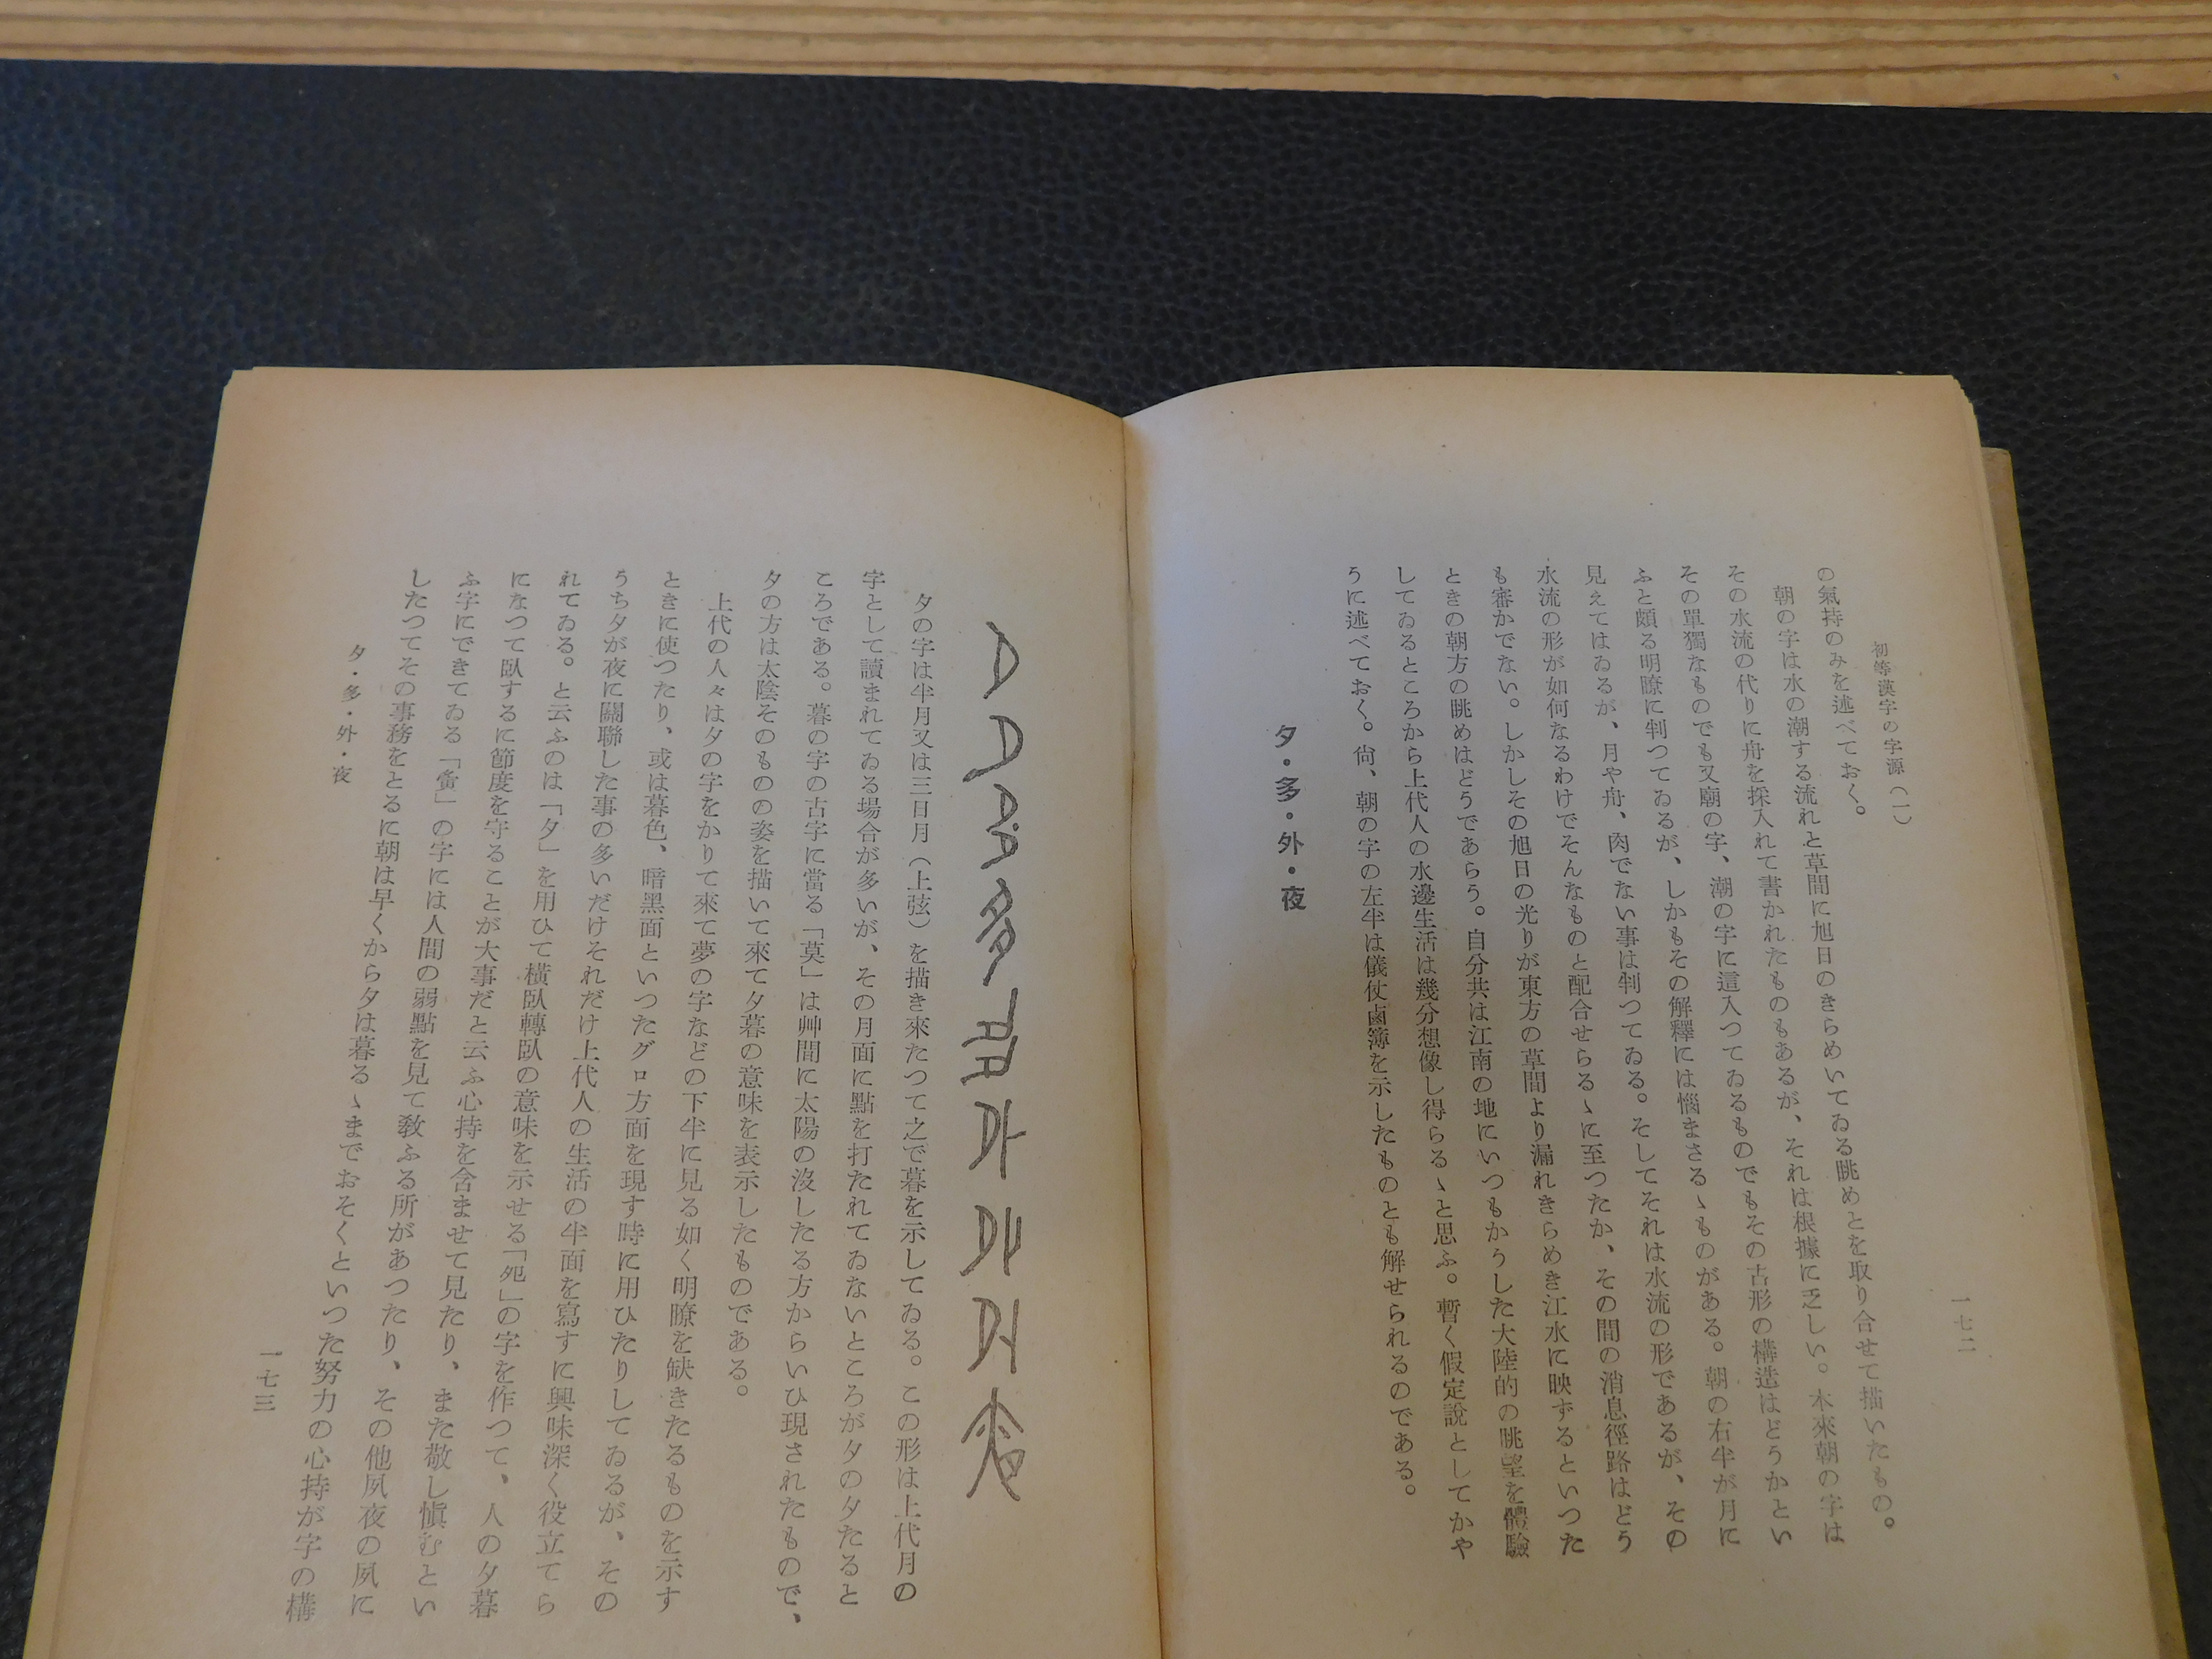 初等漢字の字源（一）
一七二
の氣持のみを述べておく。
朝の字は水の潮する流れと草間に旭日のきらめいてゐる眺めとを取り合せて描いたもの。
その水流の代りに舟を採入れて書かれたものもあるが、それは根據に乏しい。本來朝の字は
その單獨なものでも又廟の字、潮の字に這入つてゐるものでもその古形の構造はどうかとい
ふと頗る明瞭に判つてゐるが、しかもその解釋には惱まさるゝものがある。朝の右半が月に
見えてはゐるが、月や舟、肉でない事は判つてゐる。そしてそれは水流の形であるが、その
水流の形が如何なるわけでそんなものと配合せらるゝに至つたか、その間の消息徑路はどう
も審かでない。しかしその旭日の光りが東方の草間より漏れきらめき江水に映ずるといつた
ときの朝方の眺めはどうであらう。自分共は江南の地にいつもかうした大陸的の眺望を體驗
してゐるところから上代人の水邊生活は幾分想像し得らるゝと思ふ。暫く假定說としてかや
うに述べておく。尙、朝の字の左半は儀仗鹵簿を示したものとも解せられるのである。
夕・多・外・夜
夕の字は半月又は三日月（上弦）を描き來たつて之で暮を示してゐる。この形は上代月の
字として讀まれてゐる場合が多いが、その月面に點を打たれてゐないところが夕の夕たると
ころである。暮の字の古字に當る「莫」は艸間に太陽の沒したる方からいひ現されたもので、
夕の方は太陰そのものの姿を描いて來て夕暮の意味を表示したものである。
上代の人々は夕の字をかりて來て夢の字などの下半に見る如く明瞭を缺きたるものを示す
ときに使つたり、或は暮色、暗黑面といつたグロ方面を現す時に用ひたりしてゐるが、その
うち夕が夜に關聯した事の多いだけそれだけ上代人の生活の半面を寫すに興味深く役立てら
れてゐる。と云ふのは「夕」を用ひて橫臥轉臥の意味を示せる「夗」の字を作つて、人の夕暮
になつて臥するに節度を守ることが大事だと云ふ心持を含ませて見たり、また敬し愼むとい
ふ字にできてゐる「夤」の字には人間の弱點を見て敎ふる所があつたり、その他夙夜の夙に
したつてその事務をとるに朝は早くから夕は暮るゝまでおそくといつた努力の心持が字の構
夕・多・外・夜
一七三